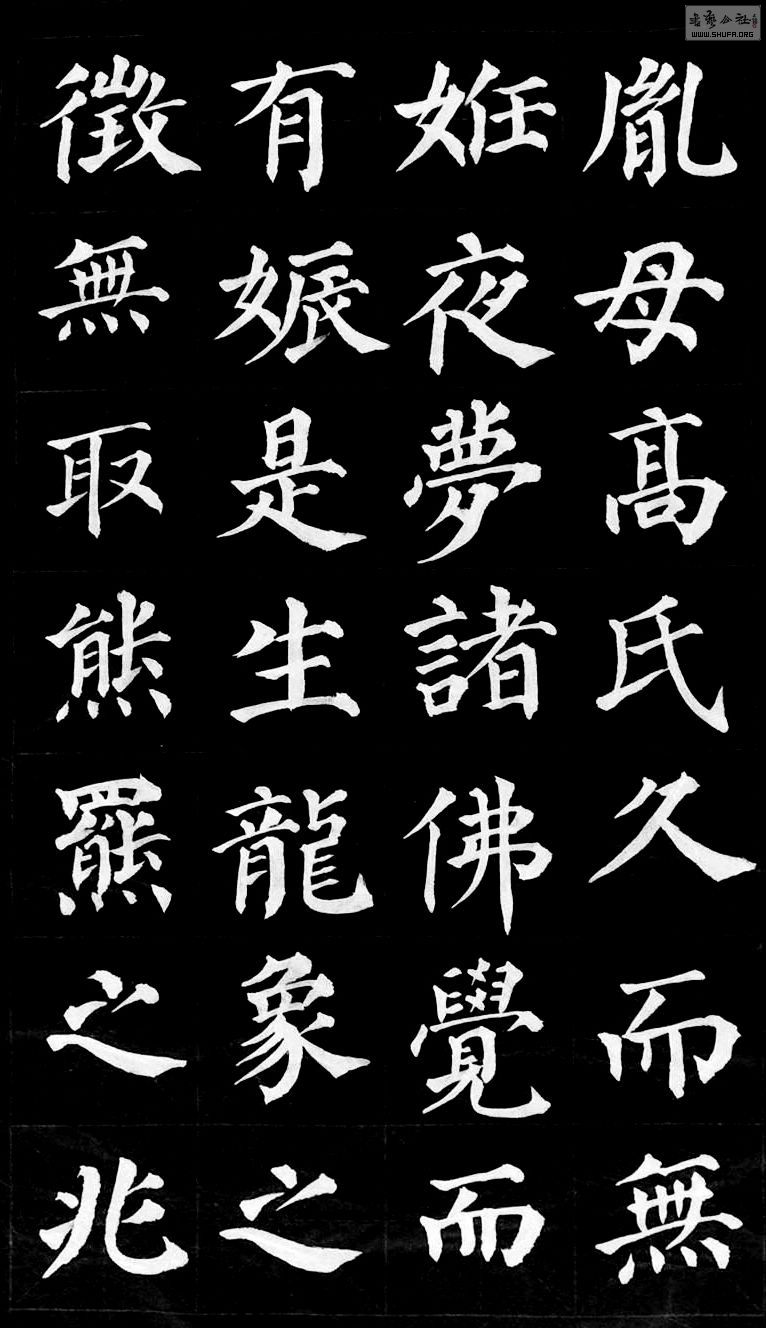 胤母高氏久而無
姙夜夢諸佛覺而
有娠是生龍象之
徵無取熊羆之兆
WWW.SHUFA.ORG